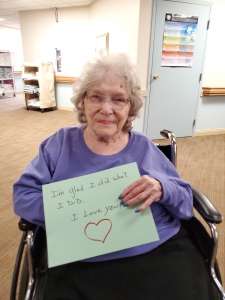 I'm glad I did what
I.D.D.
I Love you!